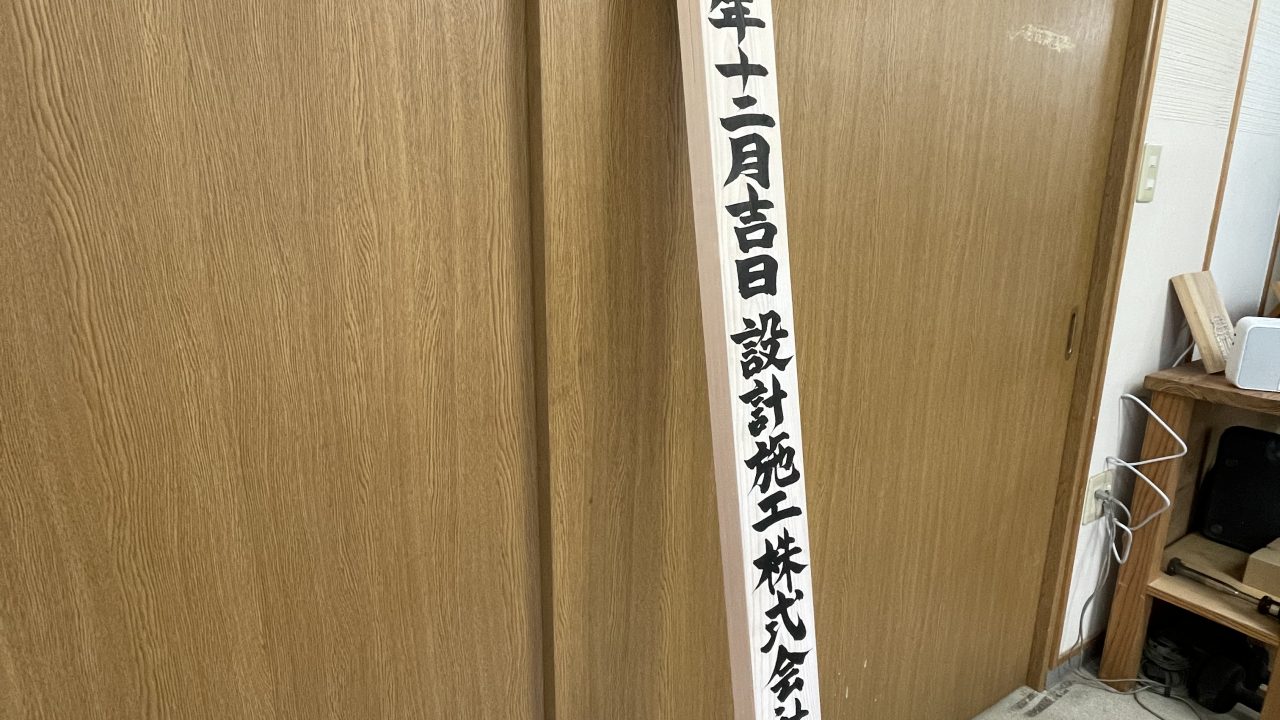 年十二月吉日 設計施工株式会社